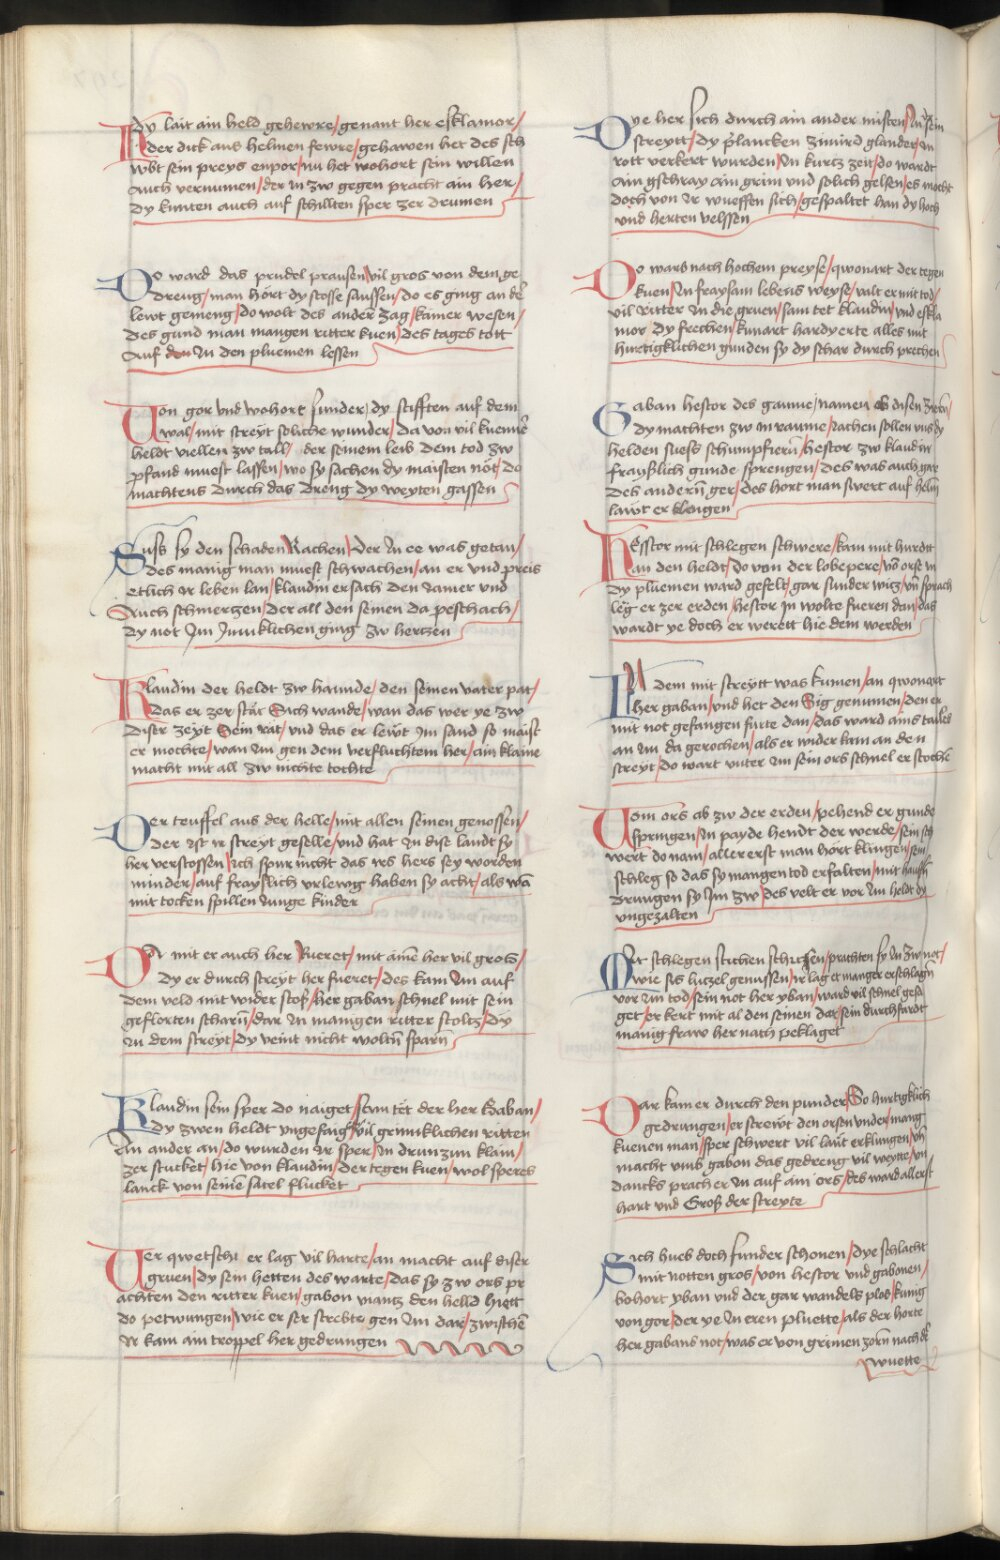 Dy lait ain held gehewre/genant her esklamor/
der dick aus helmen fewre/gehawen het des sch
wbt sein preys enpor/nu het wohort sein willen
Auch vernumen/der in zw gegen pracht ain her/
Dy kunten auch auf schillten sper zer drumen
Do ward das prudel prausen/vil gros von dem ge
dreng/man hört dy stosse saussen/do es ging an dē
lewt gemeng/do wolt des ander zag/kamer wesen/
des gund man mangen ritter kuen/des tages tott
Auf den In den pluemen lessen
Von gor vnd wohort sunder/dy stifften auf dem
wal/mit streyt soliche wunder/da von vil kuenne
heldt viellen zw tall/der seinem leib dem tod zw
pfand muest lassen/wo sy sachen dy maisten nöt/do
machtens durch das dreng dy weyten gassen
Suss sy den schaden Rachen/Der In ee was getan/
des manig man muest schwachen/an er vnd preis
etlich Ir leben lan/klaudin ersach den Iamer vnd
Auch schmertzen/der all den seinen da peschach/
dy not Im Inniklichen ging zw hertzen
Klaudin der heldt zw haunde/den seinen vater pat/
Das er zer stät Sich wande/wan das wer ye zw
diser zeyt Sein rat/vnd das er lewt Im sand so maist
er mochte/wan Im gen dem verfluchtem her/ain klaine
macht mit all zw nichte tochte
Der teuffel aus der helle/mit allen seinen genossen/
der ist ir streyt geselle/vnd hat In dise landt sy
her verstossen/ich spur nicht das irs hers sey worden
minder/auf frayslich vrlewg haben sy acht/als wā
mit tocken spillen Iunge kinder
Da mit er auch her Rueret/mit aine her vil gros/
Dy er durch streyt her fueret/des kam Im auf
dem veld mit wider stoß/her gaban schnel mit sein
geflorten scharn/dar In manigen ritter stoltz/dy
In dem streyt/dy veint nicht wolten sparn
Klaudin sein sper do naiget/sam tet der her Gaban/
dy zwen heldt vngefaig/vil grimiklichen ritten
An ander an/do wurden Ir sper/In drunzun klain/
zer stucket/hie von klaudin/der tegen kuen/wol speres
lanck von seinē satel flucket
Ver qwetscht er lag vil harte/an macht auf diser
gruen/dy sein hetten des warte/das sy zw ors pr
achten den ritter kuen/gabon mantz den helld hiett
do petwungen/wie er ser strebte gen Im dar/zwischē
Ir kam ain troppel her gedrungen
Dye her sich durch ain ander misten/In dē sein
streytt/dy plancken zwird glander/an
rott verkert wurden/In kurtz zeit/do wardt
Ain gschray ain grim vnd solich gelsen/es macht
doch von Ir wueffen sich/gespaltet han dy hoch
vnd herten velssen
Do warb nach hochem preyse/qwonart der tegen
kuen/In fraysam lebens weyse/valt er mit tod/
vil Ritter In die gruen/sam tet klaudin/vnd eskla
mor dy frechen/kunart hardyerte alles mit
hurtigklichen gunden sy dy schar durch prechen
Gaban hestor des gaune/namen ob disen zwen/
dy machten zw In raume/rachen sollen vns dy
helden suess schumpfiern/hestor zw klaudin
frayßlich gunde sprengen/des was auch gar
des andern ger/des hort man swert auf helm
lawt er klengen
Hesstor mit schlegen schwere/kam mit hurdt
an den heldt/do von der lobepere/von orse in
dy pluemen ward gefelt/gar sunder witz/vn sprach
leg er zer erden/hestor In wolte fueren dan/das
wardt ye doch er werett hie dem werden
In dem mit streytt was kumen/an qwonart
her gaban/vnd het den Sig genumen/den er
mit not gefangen furte dan/das ward ains tailes
an Im da gerochen/als er wider kam an den
streyt/do wart vnter Im sein ors schnel er stochē
Vom ors ab zw der erden/pehend er gunde
springen/In payde hendt der werde/sein sch
wert do nam/aller erst man hört klingen/sein
schleg so das sy mangen tod erfalten/mit hauff
drungen sy Im zw/des velt er vor Im heldt dy
vngezalten
Mit schlegen stichen schussen/prachten sy In zw not/
wie sis lutzel genussen/Ir lag er manger erschlagn
vor Im tod/sein not her yban/ward vil schnel gesa
get/er kert mit al den seinen dar/sein durchfardt
manig fraw her nach peklaget
Dar kam er durch den punder/So hurtigklich
gedrungen/er strewt den orsen vnder/mang
kuenen man/sper schwert vil laut erklungen/vn
macht vmb gabon das gedreng vil weytte/vn
dancks prach er In auf ain ors/des ward allerst
hart vnd Groß der streyte
Sich hueb doch sunder schonen/dye schlacht
mit notten gros/von hestor vnd gabonen/
bohort yban vnd der gar wandels plos/kunig
von gor/der ye In eren pluette/als der horte
her gabans not/was er von grimen zorn nach dē
wuette